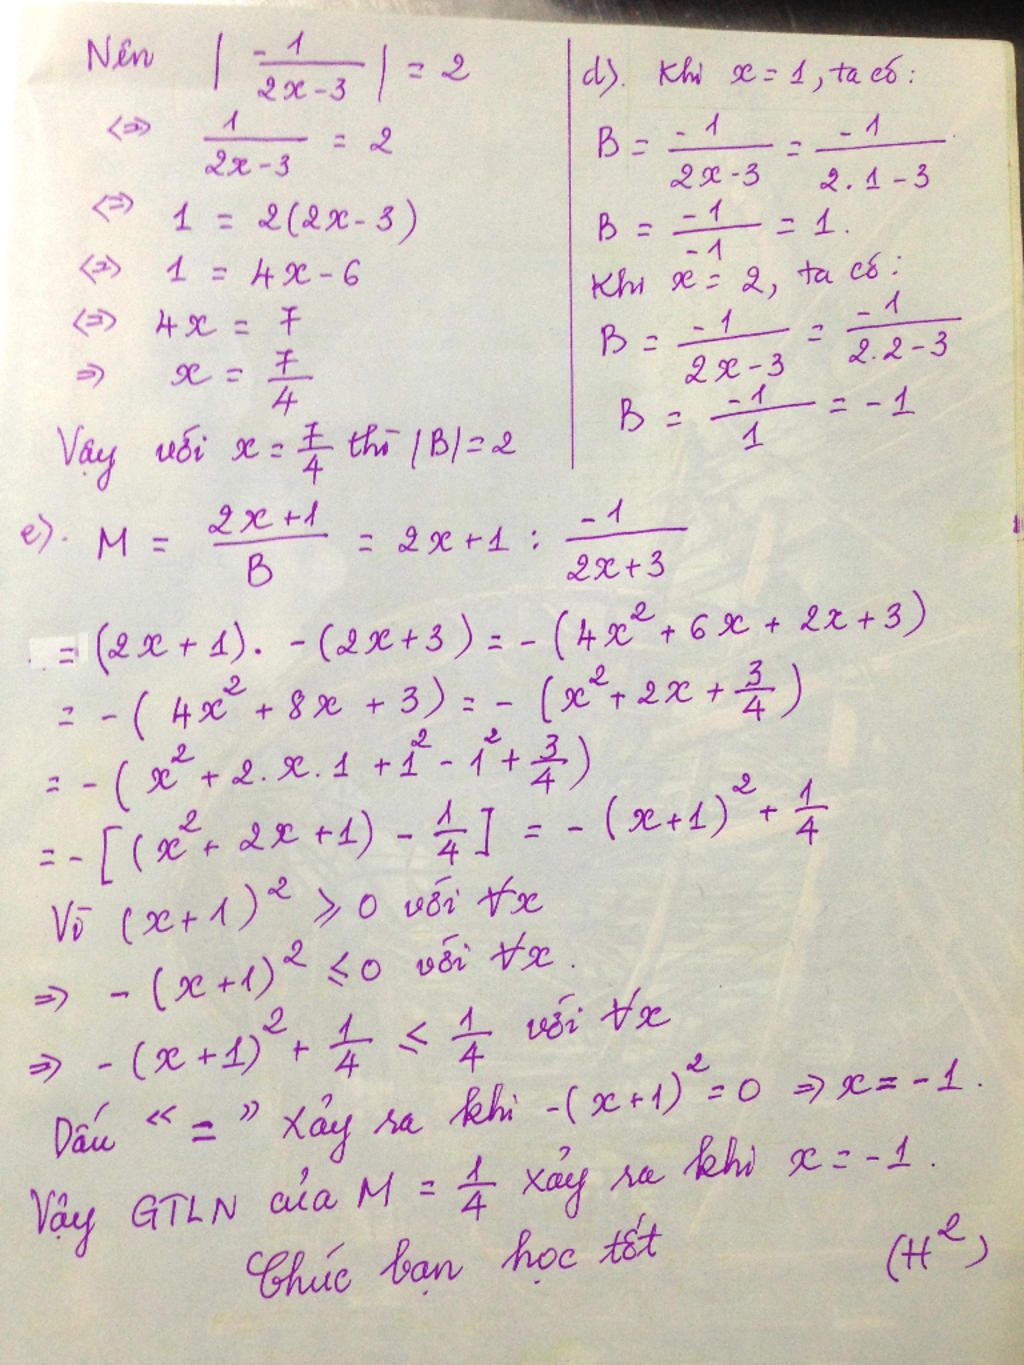 Nên | -1/(2x-3) | = 2
<=> 1/(2x-3) = 2
<=> 1 = 2(2x-3)
<=> 1 = 4x-6
<=> 4x = 7
=> x = 7/4
Vậy với x = 7/4 thì |B| = 2
d). Khi x = 1, ta có:
B = -1/(2x-3) = -1/(2.1-3)
B = -1/-1 = 1.
Khi x = 2, ta có:
B = -1/(2x-3) = -1/(2.2-3)
B = -1/1 = -1
e). M = (2x+1)/B = 2x+1 : -1/(2x+3)
= (2x+1). -(2x+3) = -(4x² + 6x + 2x + 3)
= -( 4x² + 8x + 3) = - (x² + 2x + 3/4)
= -( x² + 2.x.1 + 1² - 1² + 3/4)
= - [(x² + 2x + 1) - 1/4] = - (x+1)² + 1/4
Vì (x+1)² ≥ 0 với ∀x
=> -(x+1)² ≤ 0 với ∀x.
=> -(x+1)² + 1/4 ≤ 1/4 với ∀x
Dấu “=” xảy ra khi -(x+1)² = 0 => x = -1.
Vậy GTLN của M = 1/4 xảy ra khi x = -1.
Chúc bạn học tốt (H²)